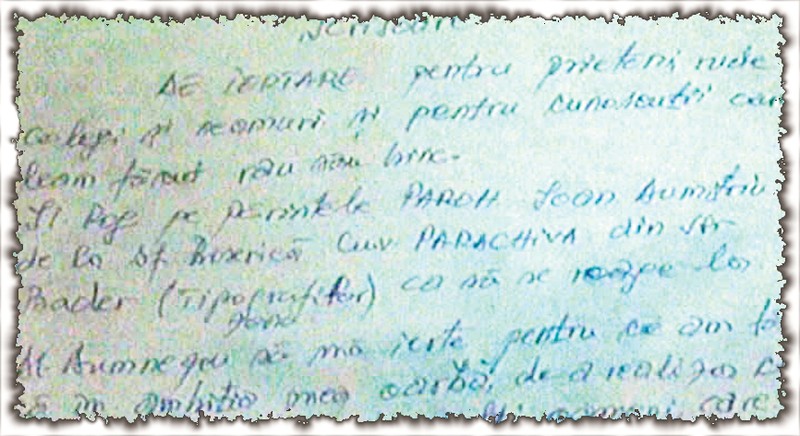 Scrisoare
DE IERTARE pentru prieteni rude
colegi și neamuri și pentru cunoscuții car
leam făcut rău sau bine.
Îl Rog pe părintele PAROH Ioan Dumitriu
de la Sf Biserică Cuv PARACHIVA din str
Brader (Tipografilor) ca să se roage la
Dumnezeu să mă ierte pentru că am
în ambiția mea oarbă, de a realiza
oameni care